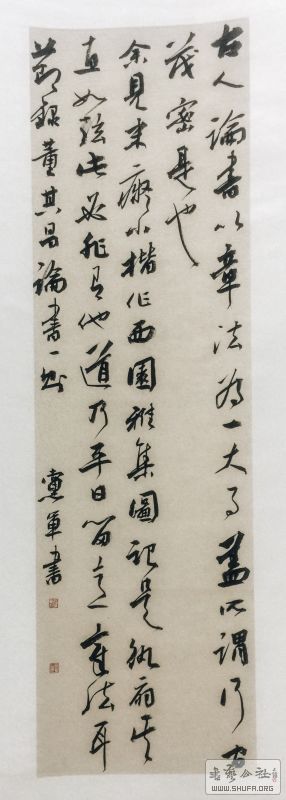 古人論書以章法為一大事蓋所謂行間
茂密是也
余見米癡小楷作西園雅集圖記是紈扇其
直如弦此必非有他道乃平日留意章法耳
節錄董其昌論書一則
党軍書
書藝公社
WWW.SHUFA.ORG